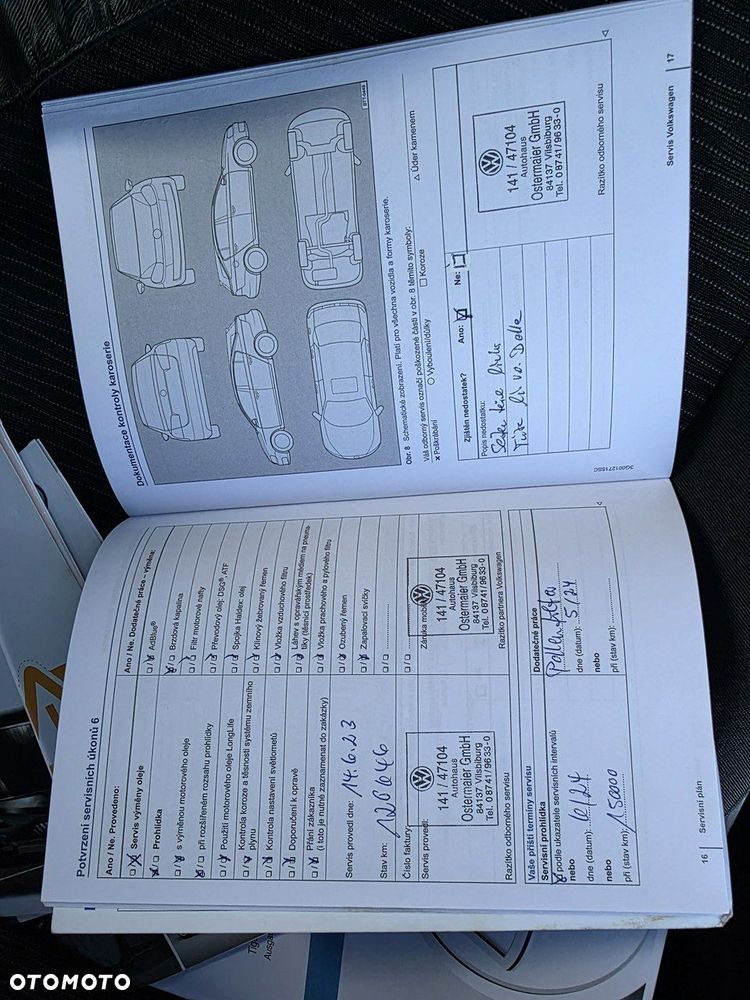 Potvrzení servisních úkonů 6
Ano / Ne. Provedeno:
Servis výměny oleje
Prohlídka
s výměnou motorového oleje
při rozšířeném rozsahu prohlídky
Použití motorového oleje LongLife
Kontrola koroze a těsnosti systému zemního
plynu
Kontrola nastavení světlometů
Doporučení k opravě
Přání zákazníka
(i toto je nutné zaznamenat do zakázky)
Servis provedl dne: 14.6.23
Stav km:
Číslo faktury:
Servis provedl:
141 / 47104
Autohaus
Ostermaier GmbH
84137 Vilsbiburg
Tel. 0 87 41 / 96 33-0
Razítko odborného servisu
Ano / Ne. Dodatečné práce – výměna:
AdBlue®
Brzdová kapalina
Filtr motorové nafty
Převodový olej: DSG®, ATF
Spojka Haldex: olej
Klínový žebrovaný řemen
Vložka vzduchového filtru
Láhev s opravářským médiem na pneuma-
tiky (těsnicí prostředek)
Vložka prachového a pylového filtru
Ozubený řemen
Zapalovací svíčky
Záruka mobility
141 / 47104
Autohaus
Ostermaier GmbH
84137 Vilsbiburg
Tel. 0 87 41 / 96 33-0
Razítko partnera Volkswagen
Vaše příští termíny servisu
Servisní prohlídka
podle ukazatele servisních intervalů
nebo
dne (datum): 6/24
nebo
při (stav km): 15000
Dodatečné práce
Pollenfilter
dne (datum): 5/24
nebo
při (stav km):
16 Servisní plán
Dokumentace kontroly karoserie
Obr. 8 Schematické zobrazení. Platí pro všechna vozidla a formy karoserie.
Váš odborný servis označí poškozené části v obr. 8 těmito symboly:
Poškrábání
Vyboulení/důlky
Koroze
Úder kamenem
Zjištěn nedostatek? Ano: Ne:
Popis nedostatku:
141 / 47104
Autohaus
Ostermaier GmbH
84137 Vilsbiburg
Tel. 0 87 41 / 96 33-0
Razítko odborného servisu
3G0012715SC
Servis Volkswagen 17
OTOMOTO